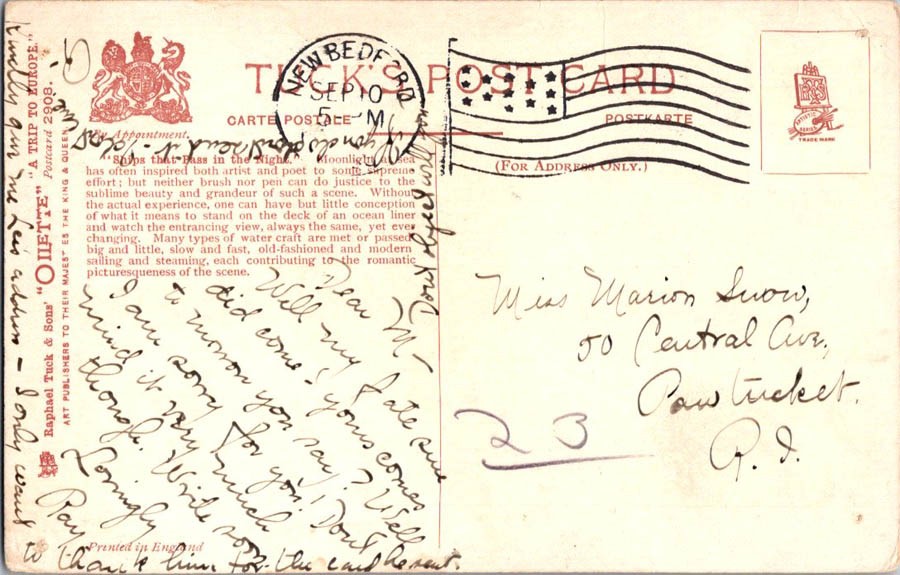 TUCK'S POST CARD
CARTE POSTALE
POSTKARTE
(FOR ADDRESS ONLY.)
By Appointment.
NEW BEDFORD
SEP 10
5 - PM
ARTISTIC SERIES
TRADE MARK
"Ships that Pass in the Night." Moonlight at sea
has often inspired both artist and poet to some supreme
effort; but neither brush nor pen can do justice to the
sublime beauty and grandeur of such a scene. Without
the actual experience, one can have but little conception
of what it means to stand on the deck of an ocean liner
and watch the entrancing view, always the same, yet ever
changing. Many types of water craft are met or passed
big and little, slow and fast, old-fashioned and modern
sailing and steaming, each contributing to the romantic
picturesqueness of the scene.
Raphael Tuck & Sons' "OILETTE" "A TRIP TO EUROPE."
Postcard 2908.
ART PUBLISHERS TO THEIR MAJESTIES THE KING & QUEEN
Dear M-
Well my fate sure
did come - yours comes
to morrow you say? Well
I am sorry for you! Don't
mind it very much
though. Write soon
Lovingly
Ray
Kindly give me Len's address - I only want
to thank him for the card he sent.
Miss Marion Snow,
50 Central Ave.,
Pawtucket.
R.I.
23
Printed in England